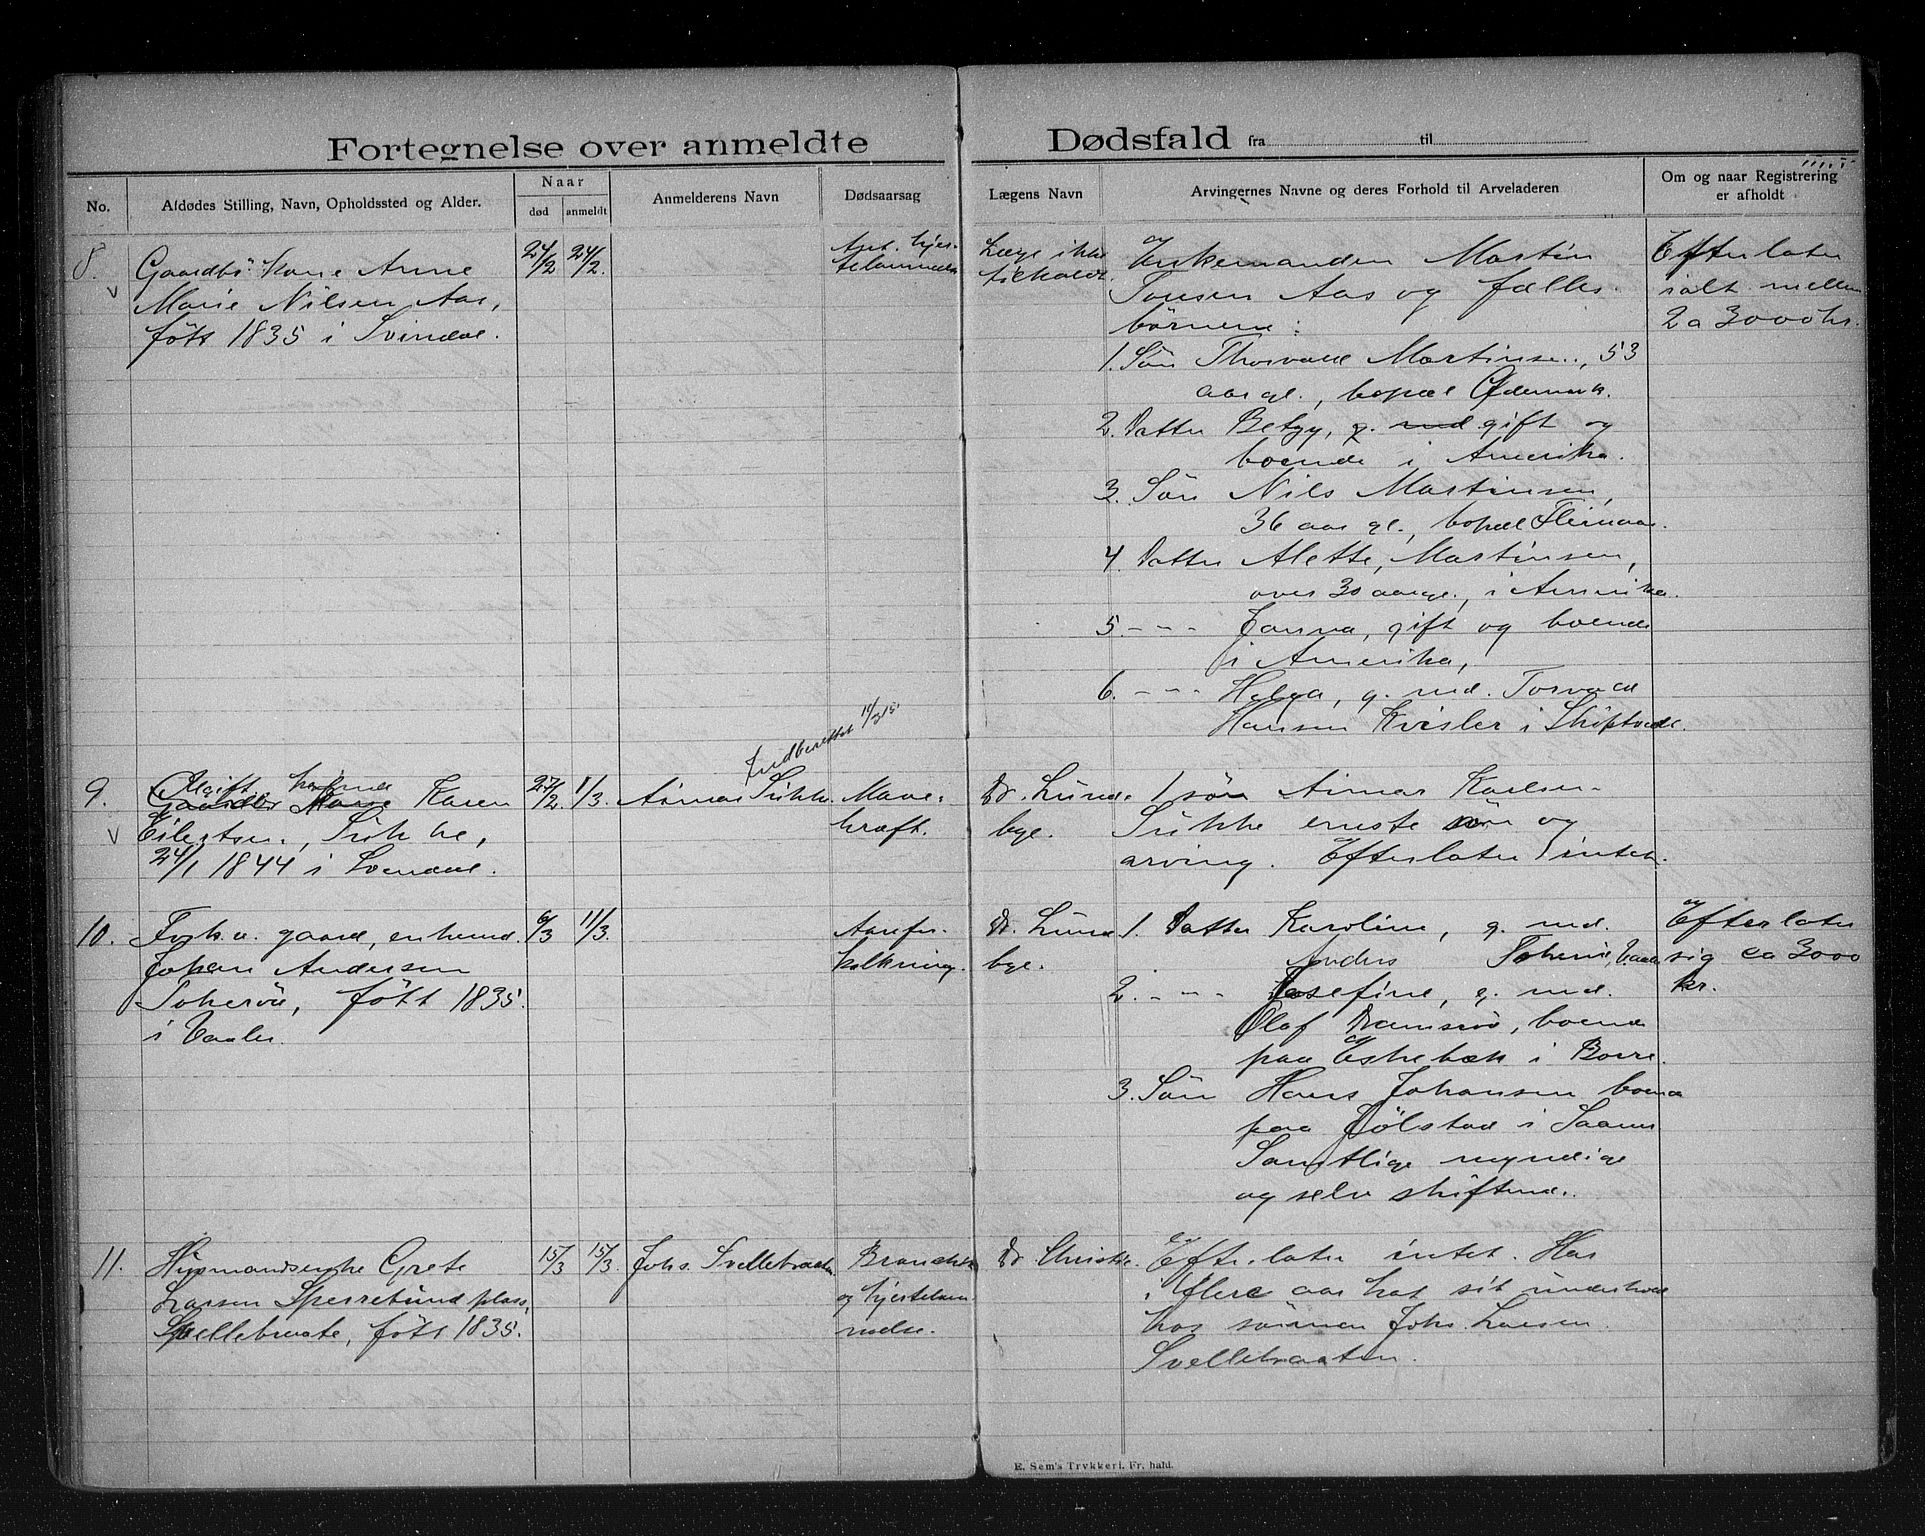 Fortegnelse over anmeldte Dødsfald fra til
No.
Afdødes Stilling, Navn, Opholdssted og Alder.
Naar
død
anmeldt
Anmelderens Navn
Dødsaarsag
Lægens Navn
Arvingernes Navne og deres Forhold til Arveladeren
Om og naar Registrering
er afholdt
8.
Gaardbr. Kone Anne
Marie Nilsen Aas,
født 1835 i Svindal.
24/2
24/2.
Ant. hjer-
telammelse
Læge ikke
tilkaldt.
Enkemanden Martin
Tonsen Aas og fælles-
børnene:
1. Søn Thorvald Martinsen, 53
aar gl., bopæl Ødemark.
2. Datter Betzy, g. med gift og
boende i Amerika.
3. Søn Nils Martinsen,
36 aar gl., bopæl
4. Datter Alette, Martinsen,
over 30 aar gl., i Amerika.
5. - - - Janna, gift og boende
i Amerika,
6. - - - Helga, g. med. Torvald
Hansen Kvisler i Skiptvedt.
Efterlater
ialt mellem
2 a 3000 kr.
Indberettet 11/3 15
9.
Gaardbr Kone Karen
Eilertsen, Sukke,
24/1 1844 i Svendal.
27/2.
1/3.
Aimar Sukke
Mave-
kræft.
Dr. Lund-
bye.
1 søn Aimar Karlsen
Sukke eneste søn og
arving. Efterlater intet.
10.
Fork. v. gaard, enkemd.
Johan Andersen
Tokerød, født 1835.
i Vaaler.
6/3
11/3.
Aarefor-
kalkning.
Dr. Lund
bye.
1. Datter Karoline, g. med.
Anders Vaaler
2. - - - Josefine, g. med.
Olaf Ramsrød, boende
paa Eskebæk i Borre.
3. Søn Hans Johansen boende
paa Jølstad i Saaner
Samtlige myndige
og selv skiftende.
Efterlater
sig ca 3000
kr.
11.
Husmandsenke Grete
Larsen Sperrebund plass,
Svellebraate, født 1835.
15/3
15/3.
Johs. Svellebraaten
Bronchitt
og hjertelam-
melse.
Dr. Christie.
Efterlater intet. Har
i flere aar hat sit underhold
hos sønnen Johs. Larsen
Svellebraaten.
E. Sem's Trykkeri, Fr.hald.